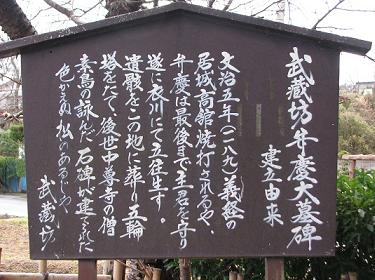 武蔵坊弁慶大墓碑
建立由来
文治五年(一一八九)義経の
居城高館焼打されるや、
弁慶は最後まで主君を守り
遂に衣川にて立往生す。
遺骸をこの地に葬り五輪
塔をたて後世中尊寺の僧
素鳥の詠んだ石碑が建てられた
色かえぬ松のあるじや
武蔵坊